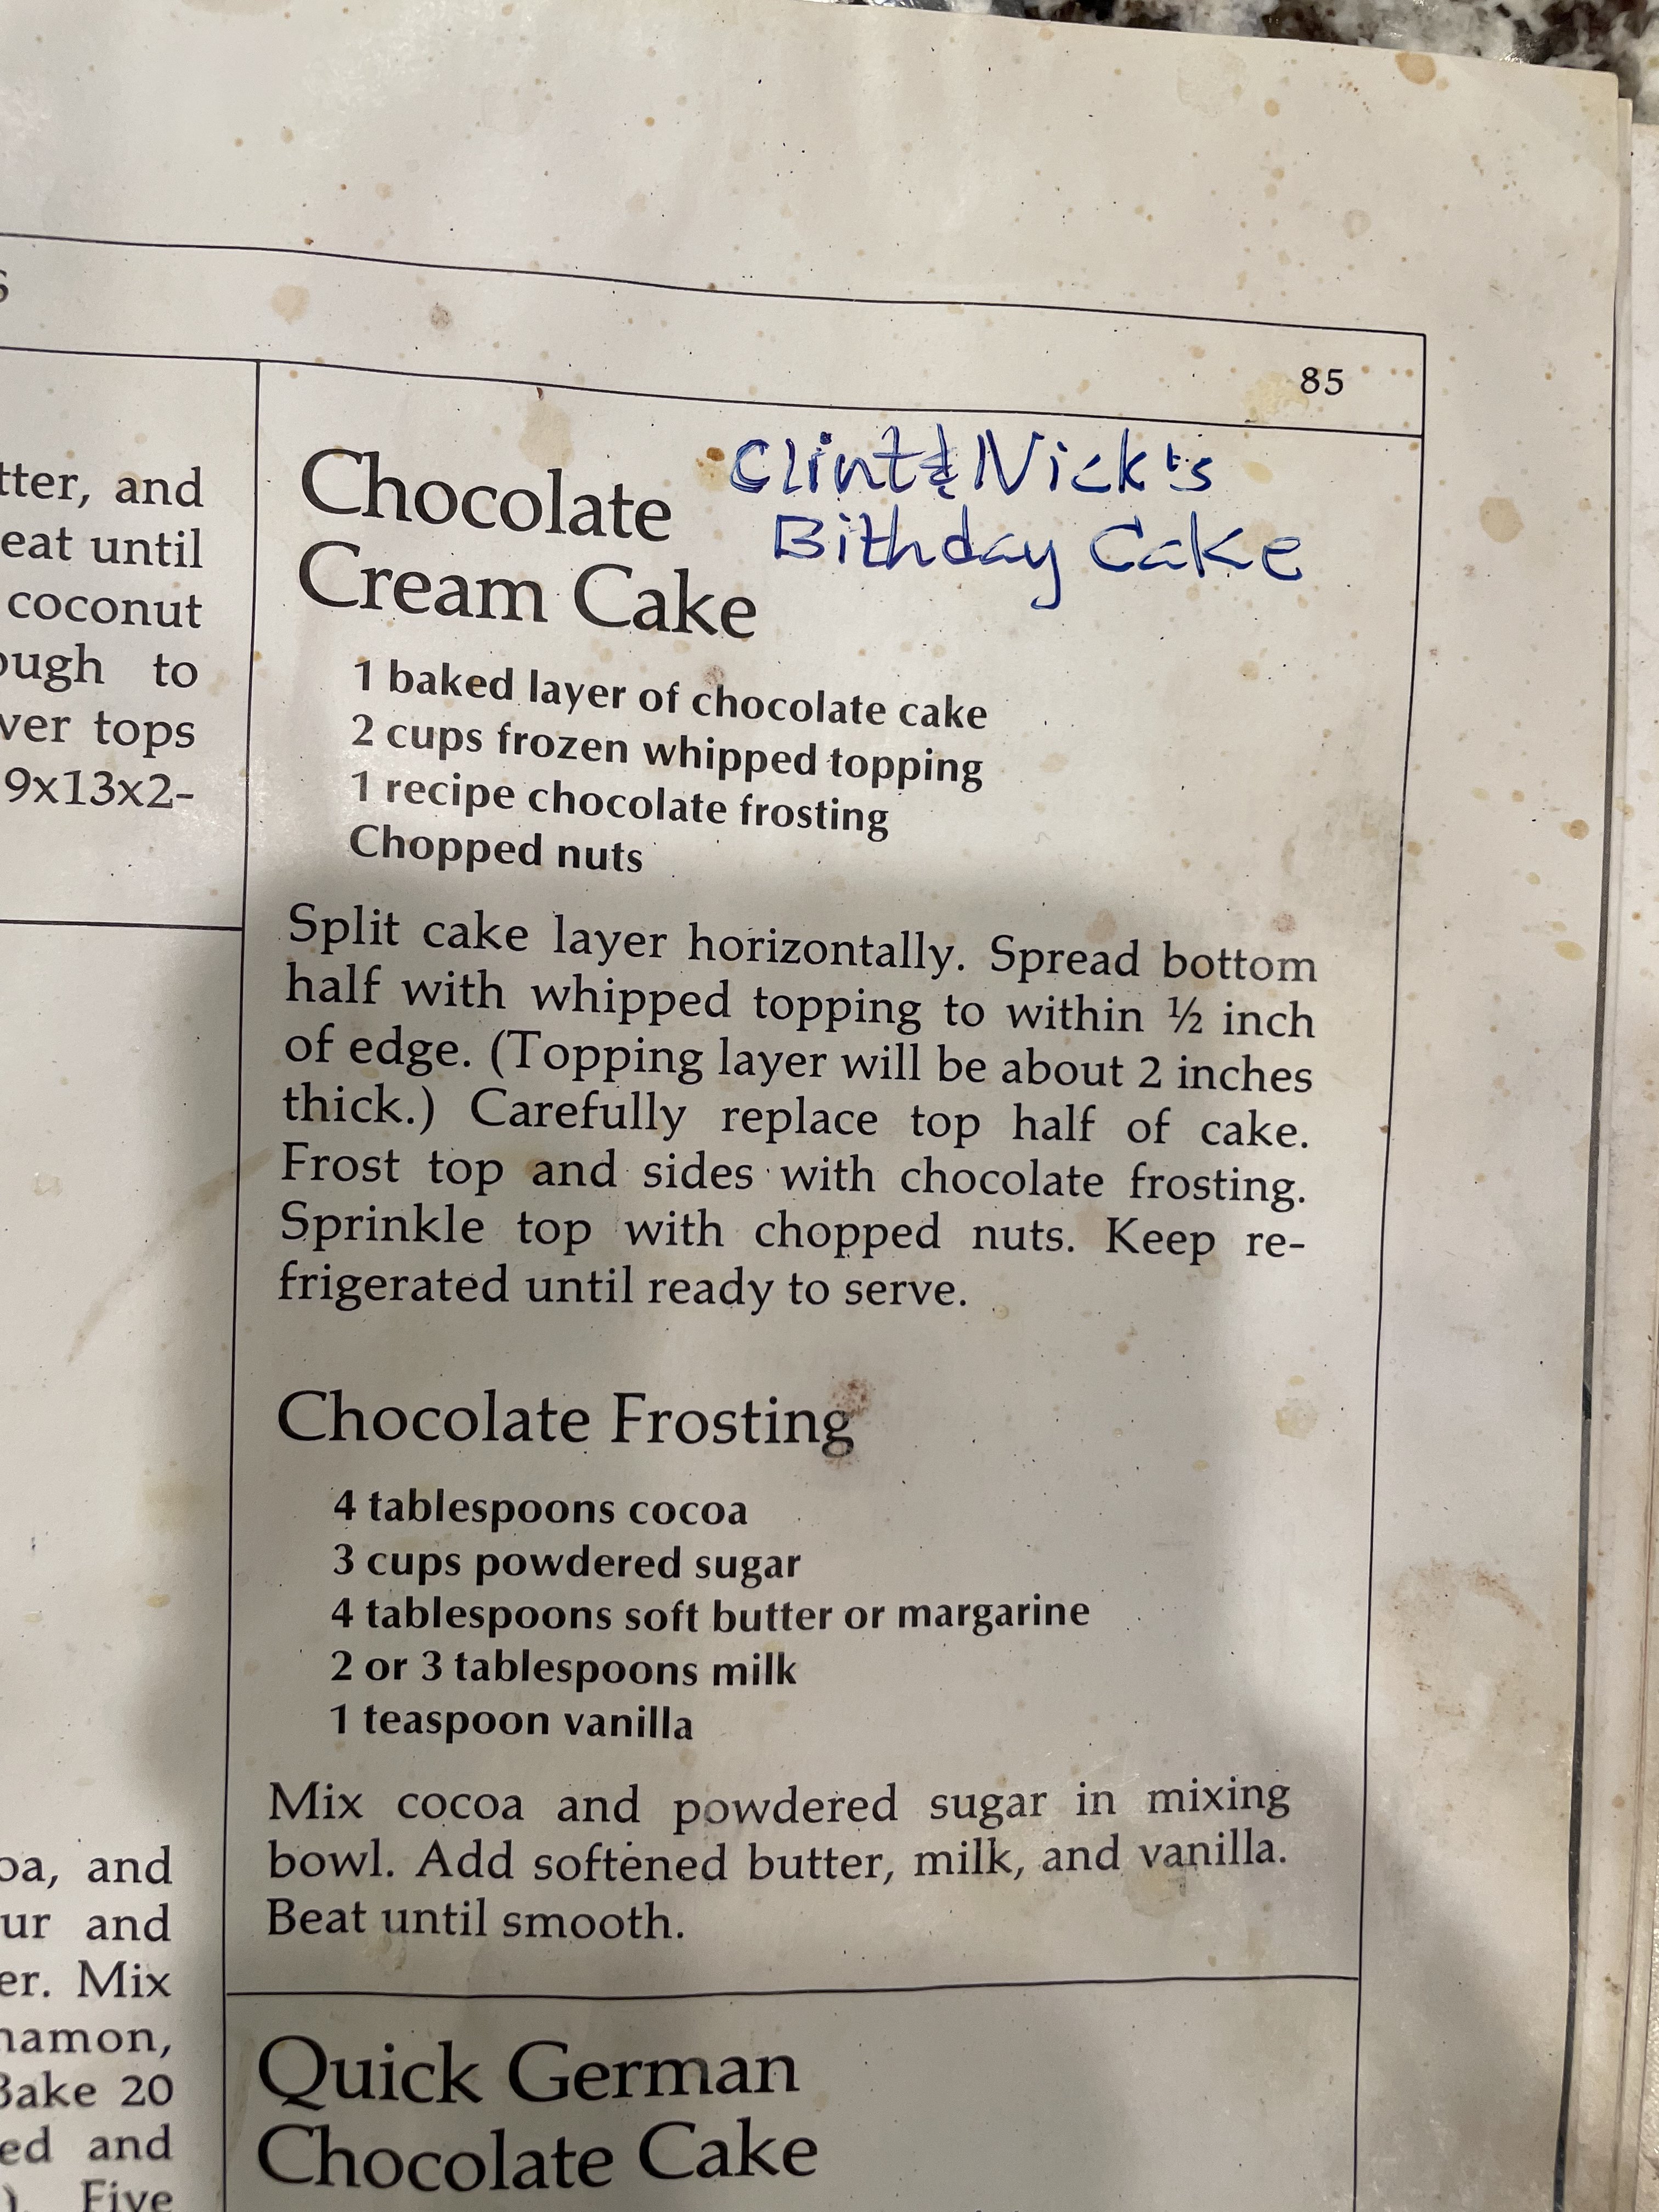 85
tter, and
eat until
coconut
ough to
ver tops
9x13x2-
oa, and
ur and
er. Mix
namon,
Bake 20
ed and
). Five
Chocolate
Cream Cake
Clint & Nick's
Bithday Cake
1 baked layer of chocolate cake
2 cups frozen whipped topping
1 recipe chocolate frosting
Chopped nuts
Split cake layer horizontally. Spread bottom
half with whipped topping to within ½ inch
of edge. (Topping layer will be about 2 inches
thick.) Carefully replace top half of cake.
Frost top and sides with chocolate frosting.
Sprinkle top with chopped nuts. Keep re-
frigerated until ready to serve.
Chocolate Frosting
4 tablespoons cocoa
3 cups powdered sugar
4 tablespoons soft butter or margarine
2 or 3 tablespoons milk
1 teaspoon vanilla
Mix cocoa and powdered sugar in mixing
bowl. Add softened butter, milk, and vanilla.
Beat until smooth.
Quick German
Chocolate Cake